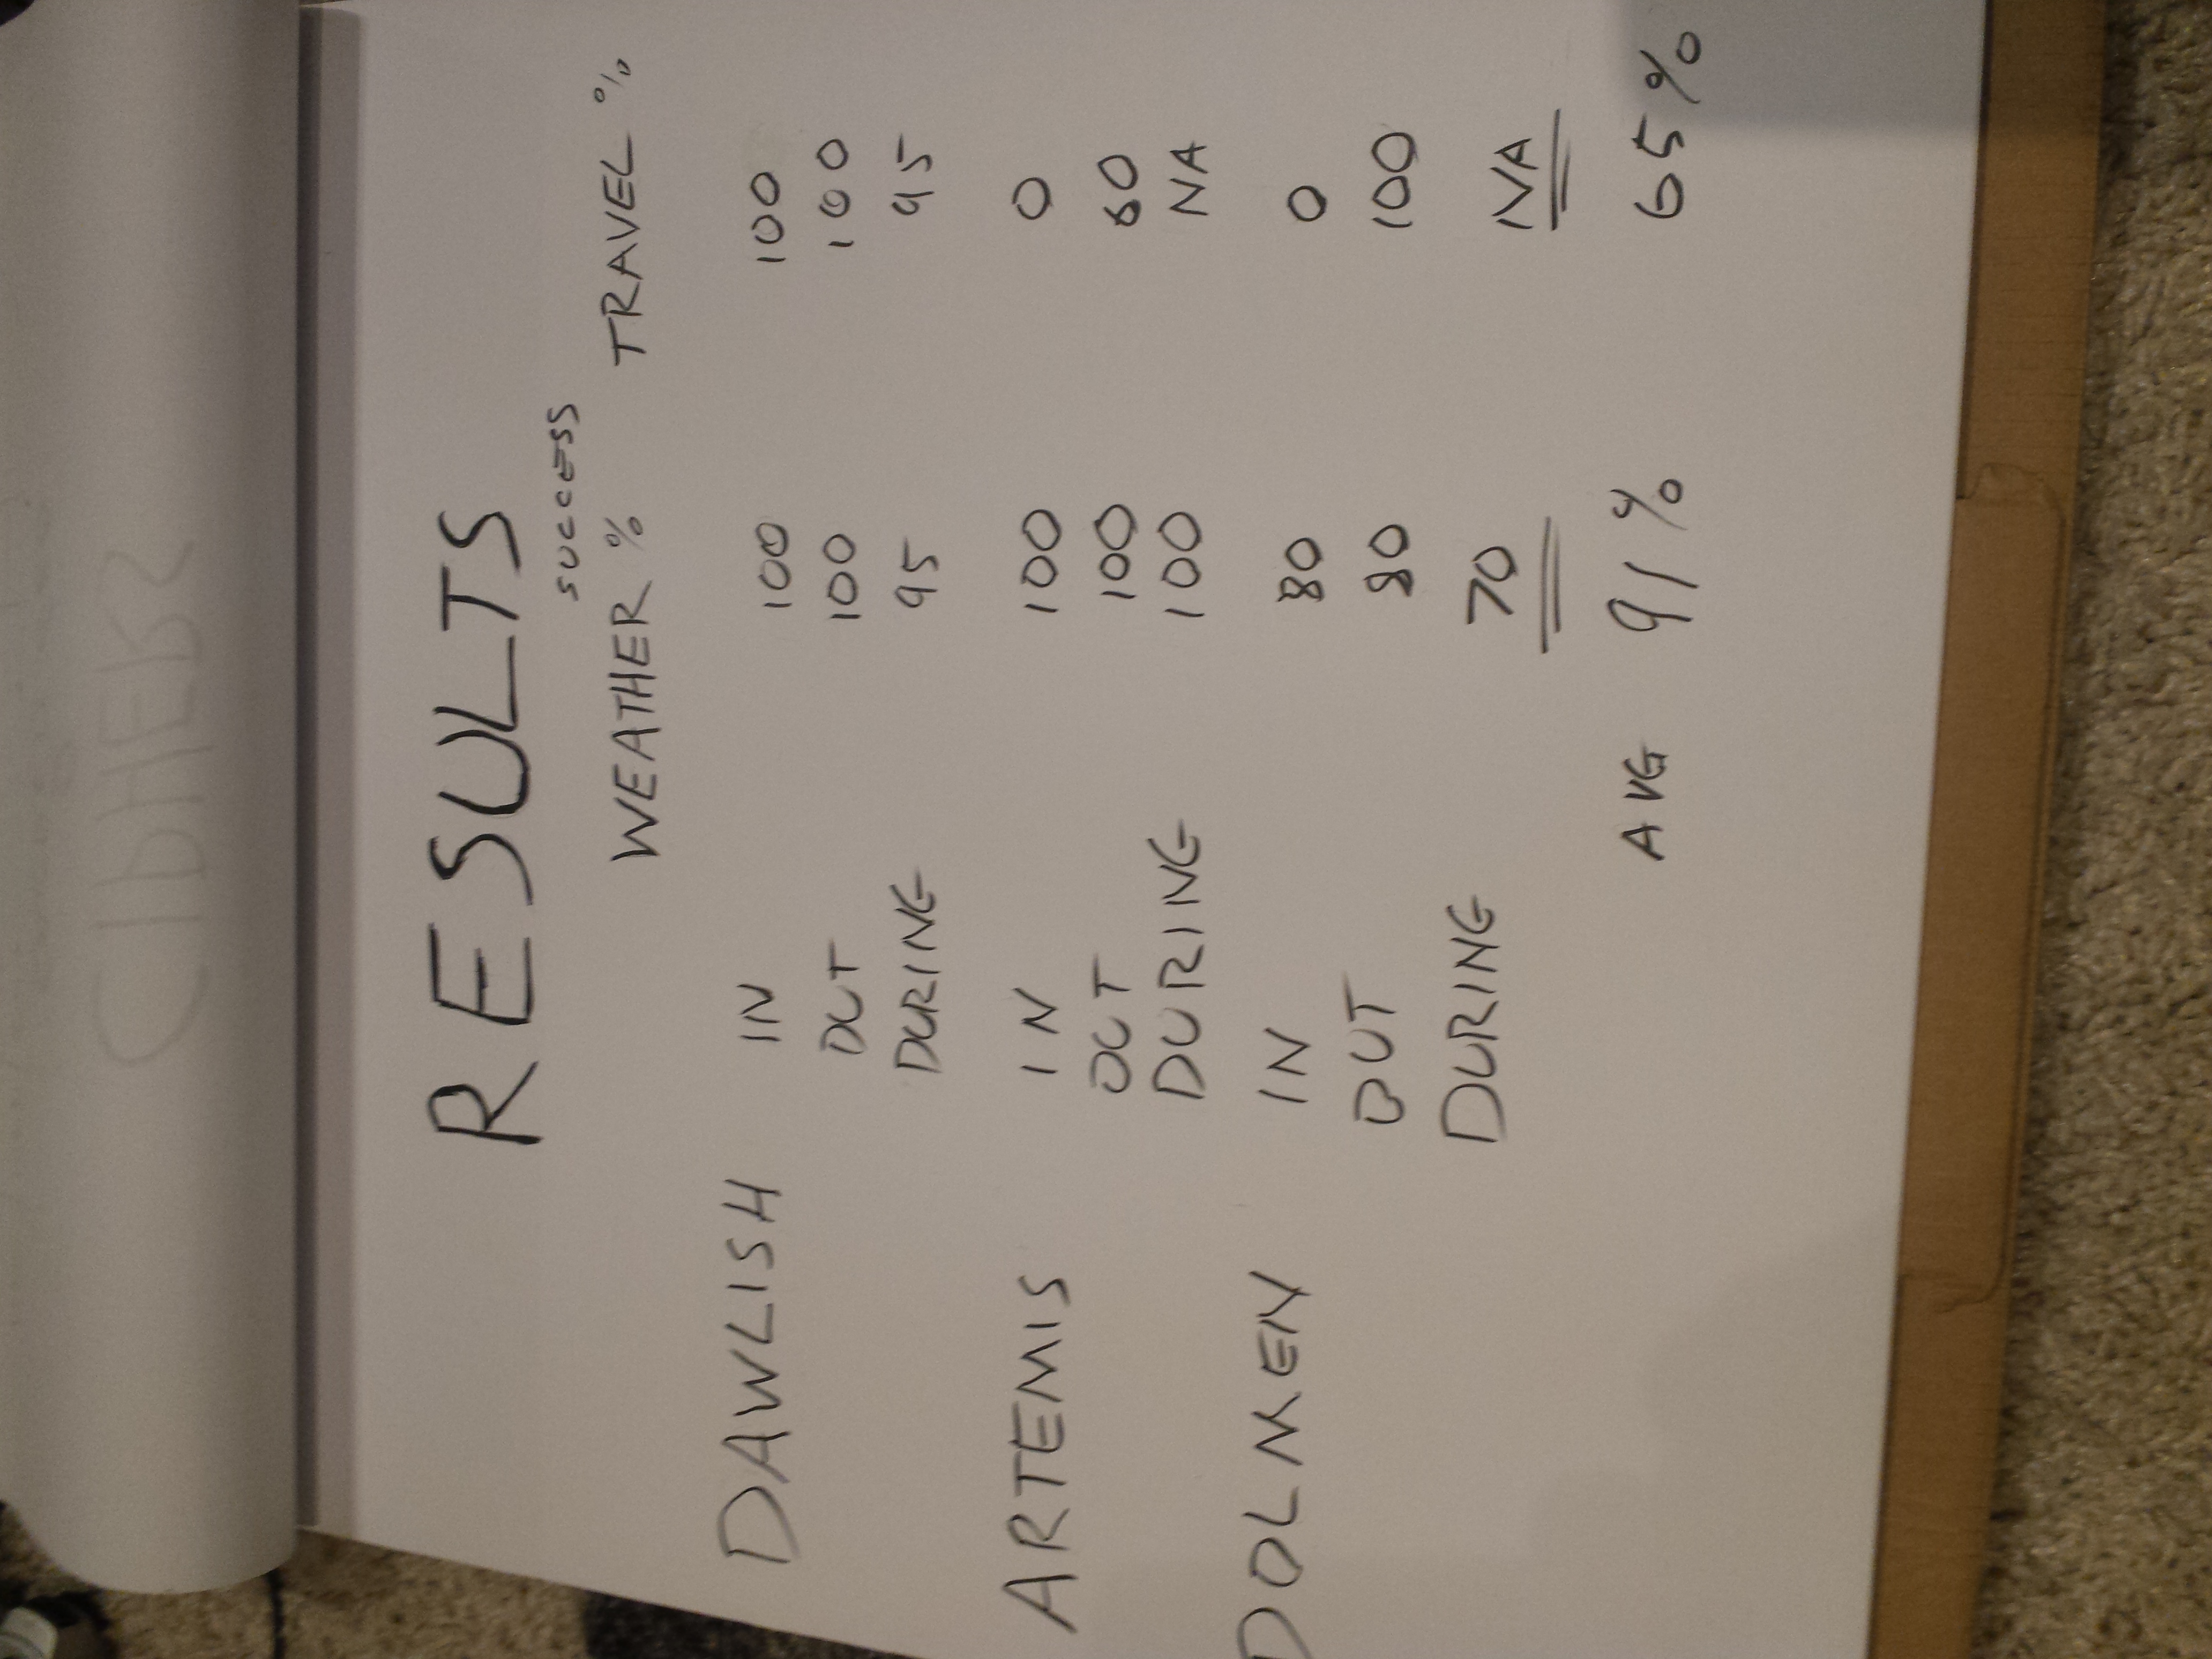 CIPHERS
RESULTS
SUCCESS
WEATHER % TRAVEL %
DAWLISH IN 100 100
OUT 100 100
DURING 95 95
ARTEMIS IN 100 0
OUT 100 60
DURING 100 NA
DOLMEN IN 80 0
OUT 80 100
DURING 70 NA
AVG 91% 65%